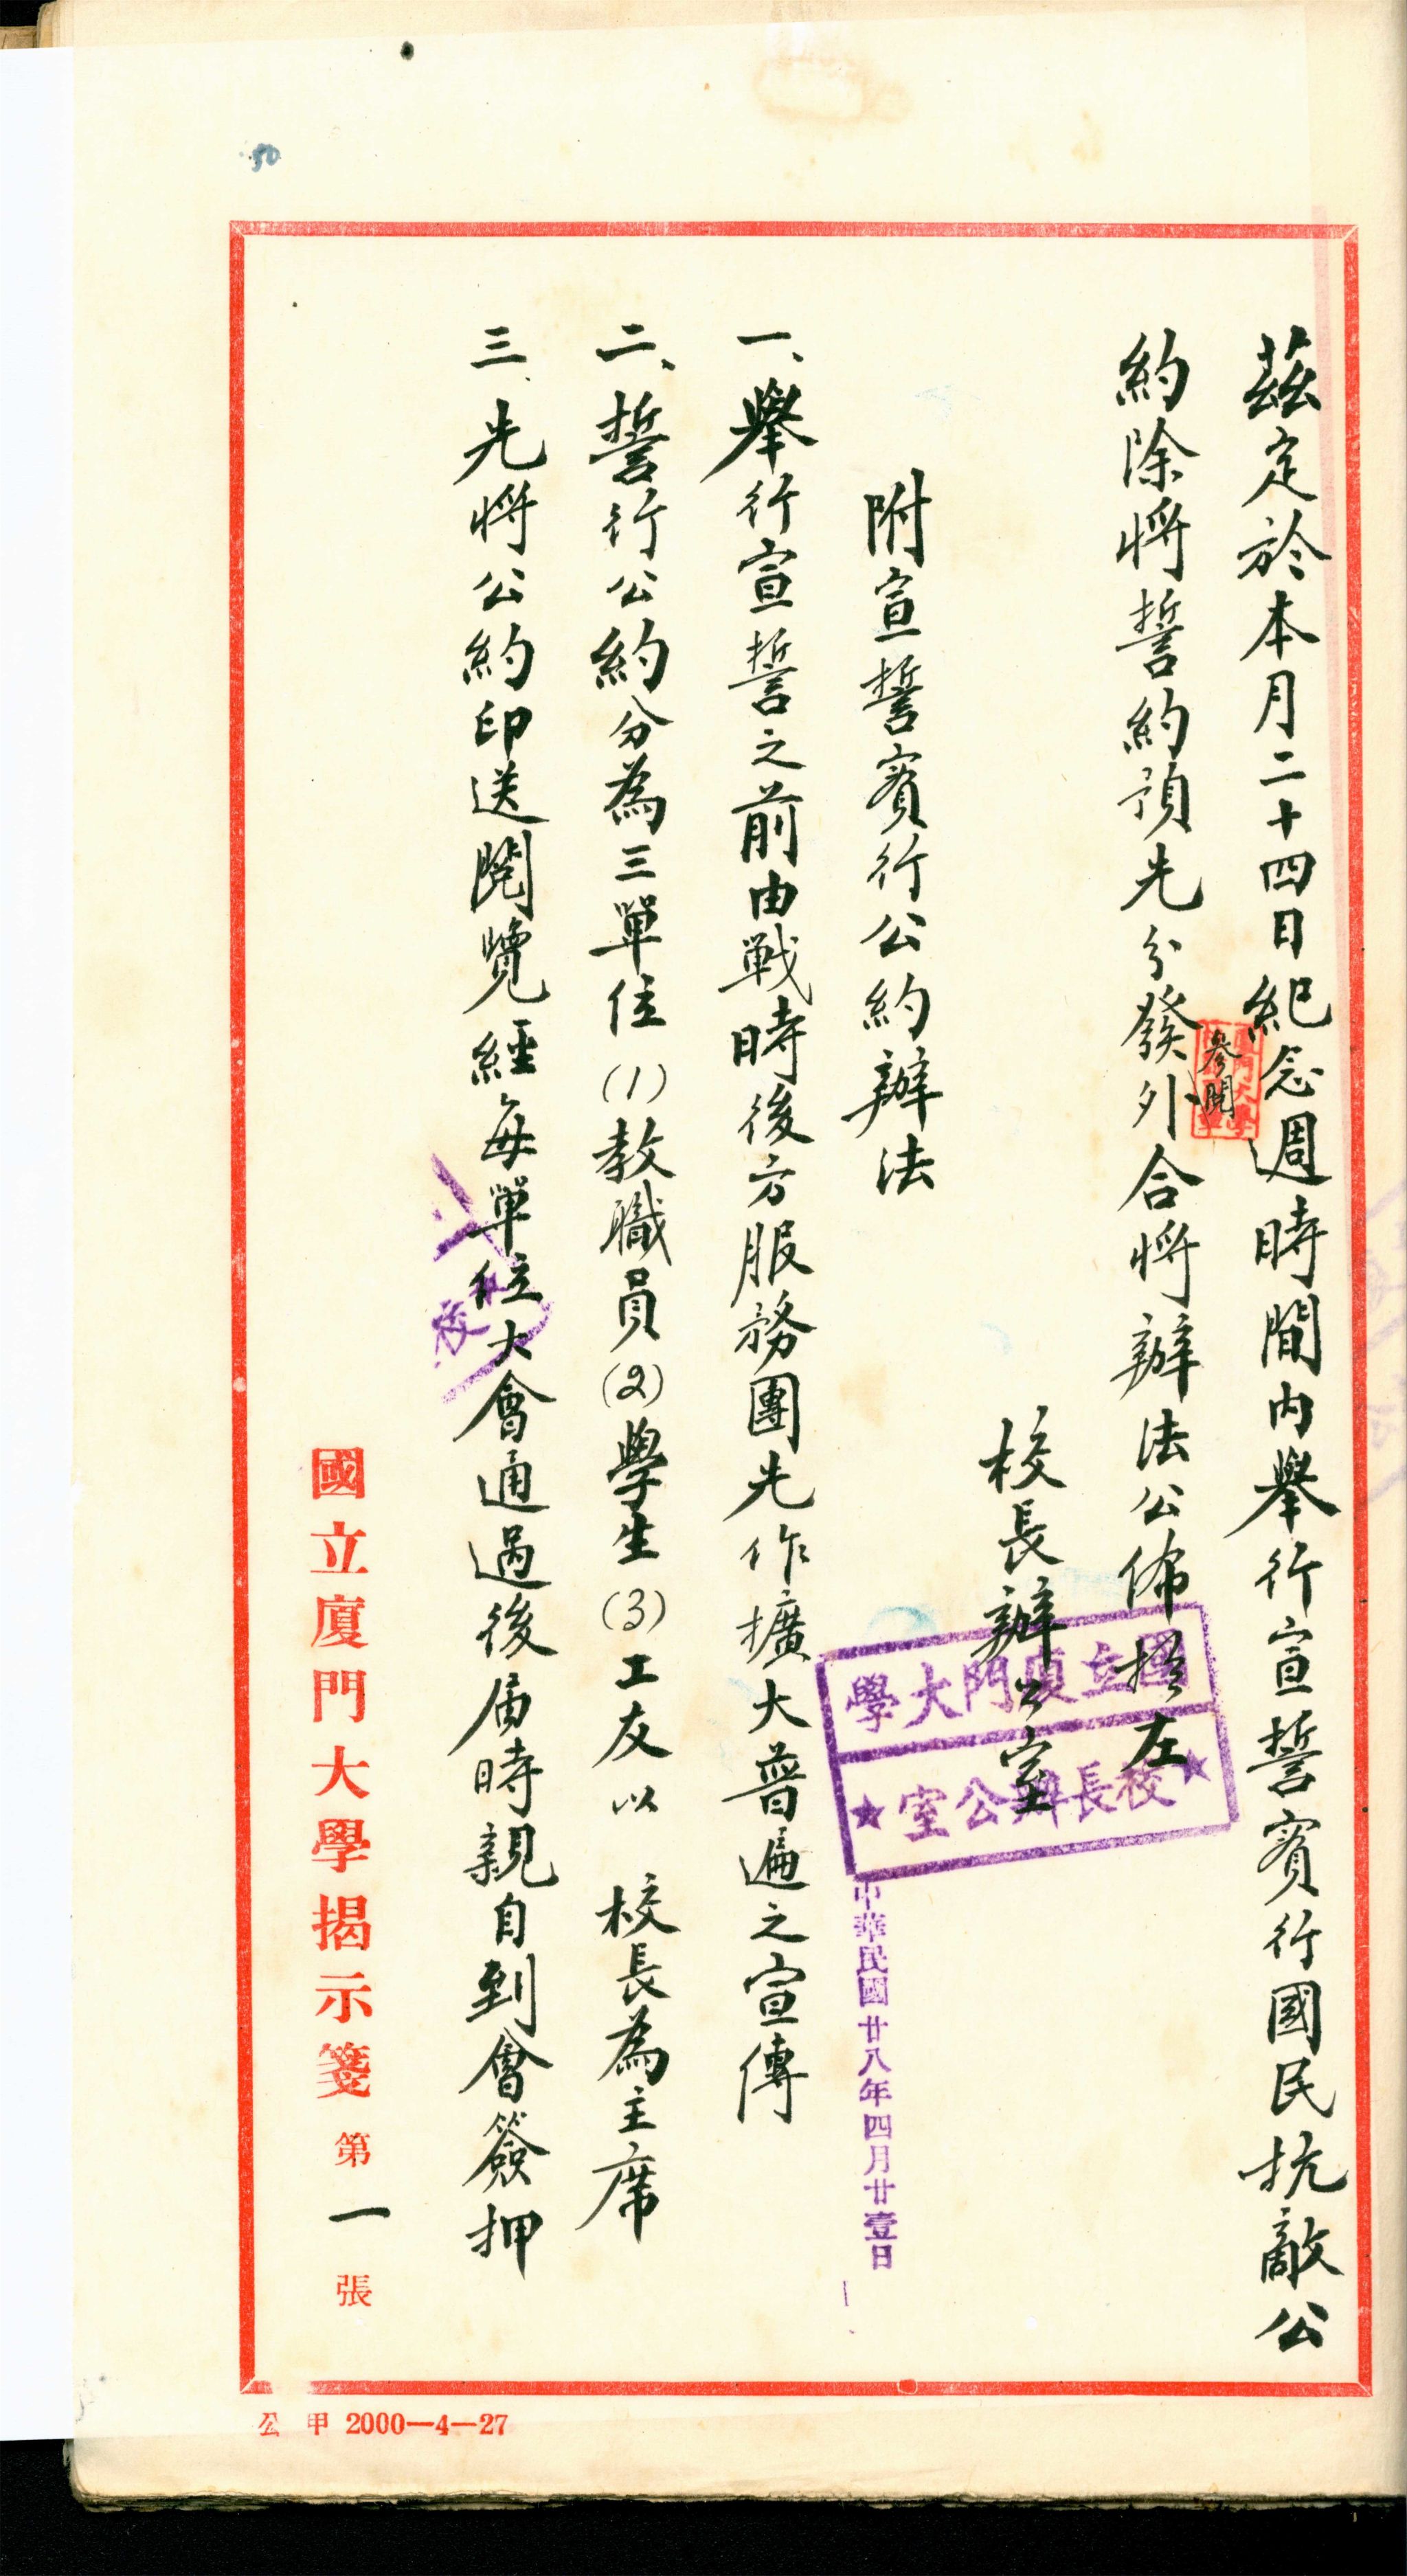 茲定於本月二十四日紀念週時間內舉行宣誓實行國民抗敵公
約除將誓約預先分發參閱外合將辦法公佈於左
校長辦公室
國立廈門大學
校長辦公室
中華民國廿八年四月廿壹日
附宣誓實行公約辦法
一、舉行宣誓之前由戰時後方服務團先作擴大普遍之宣傳
二、誓行公約分為三單位(1)教職員(2)學生(3)工友以 校長為主席
三、先將公約印送閱覽經每單位大會通過後屆時親自到會簽押
國立廈門大學揭示箋 第一張
公甲 2000—4—27
50